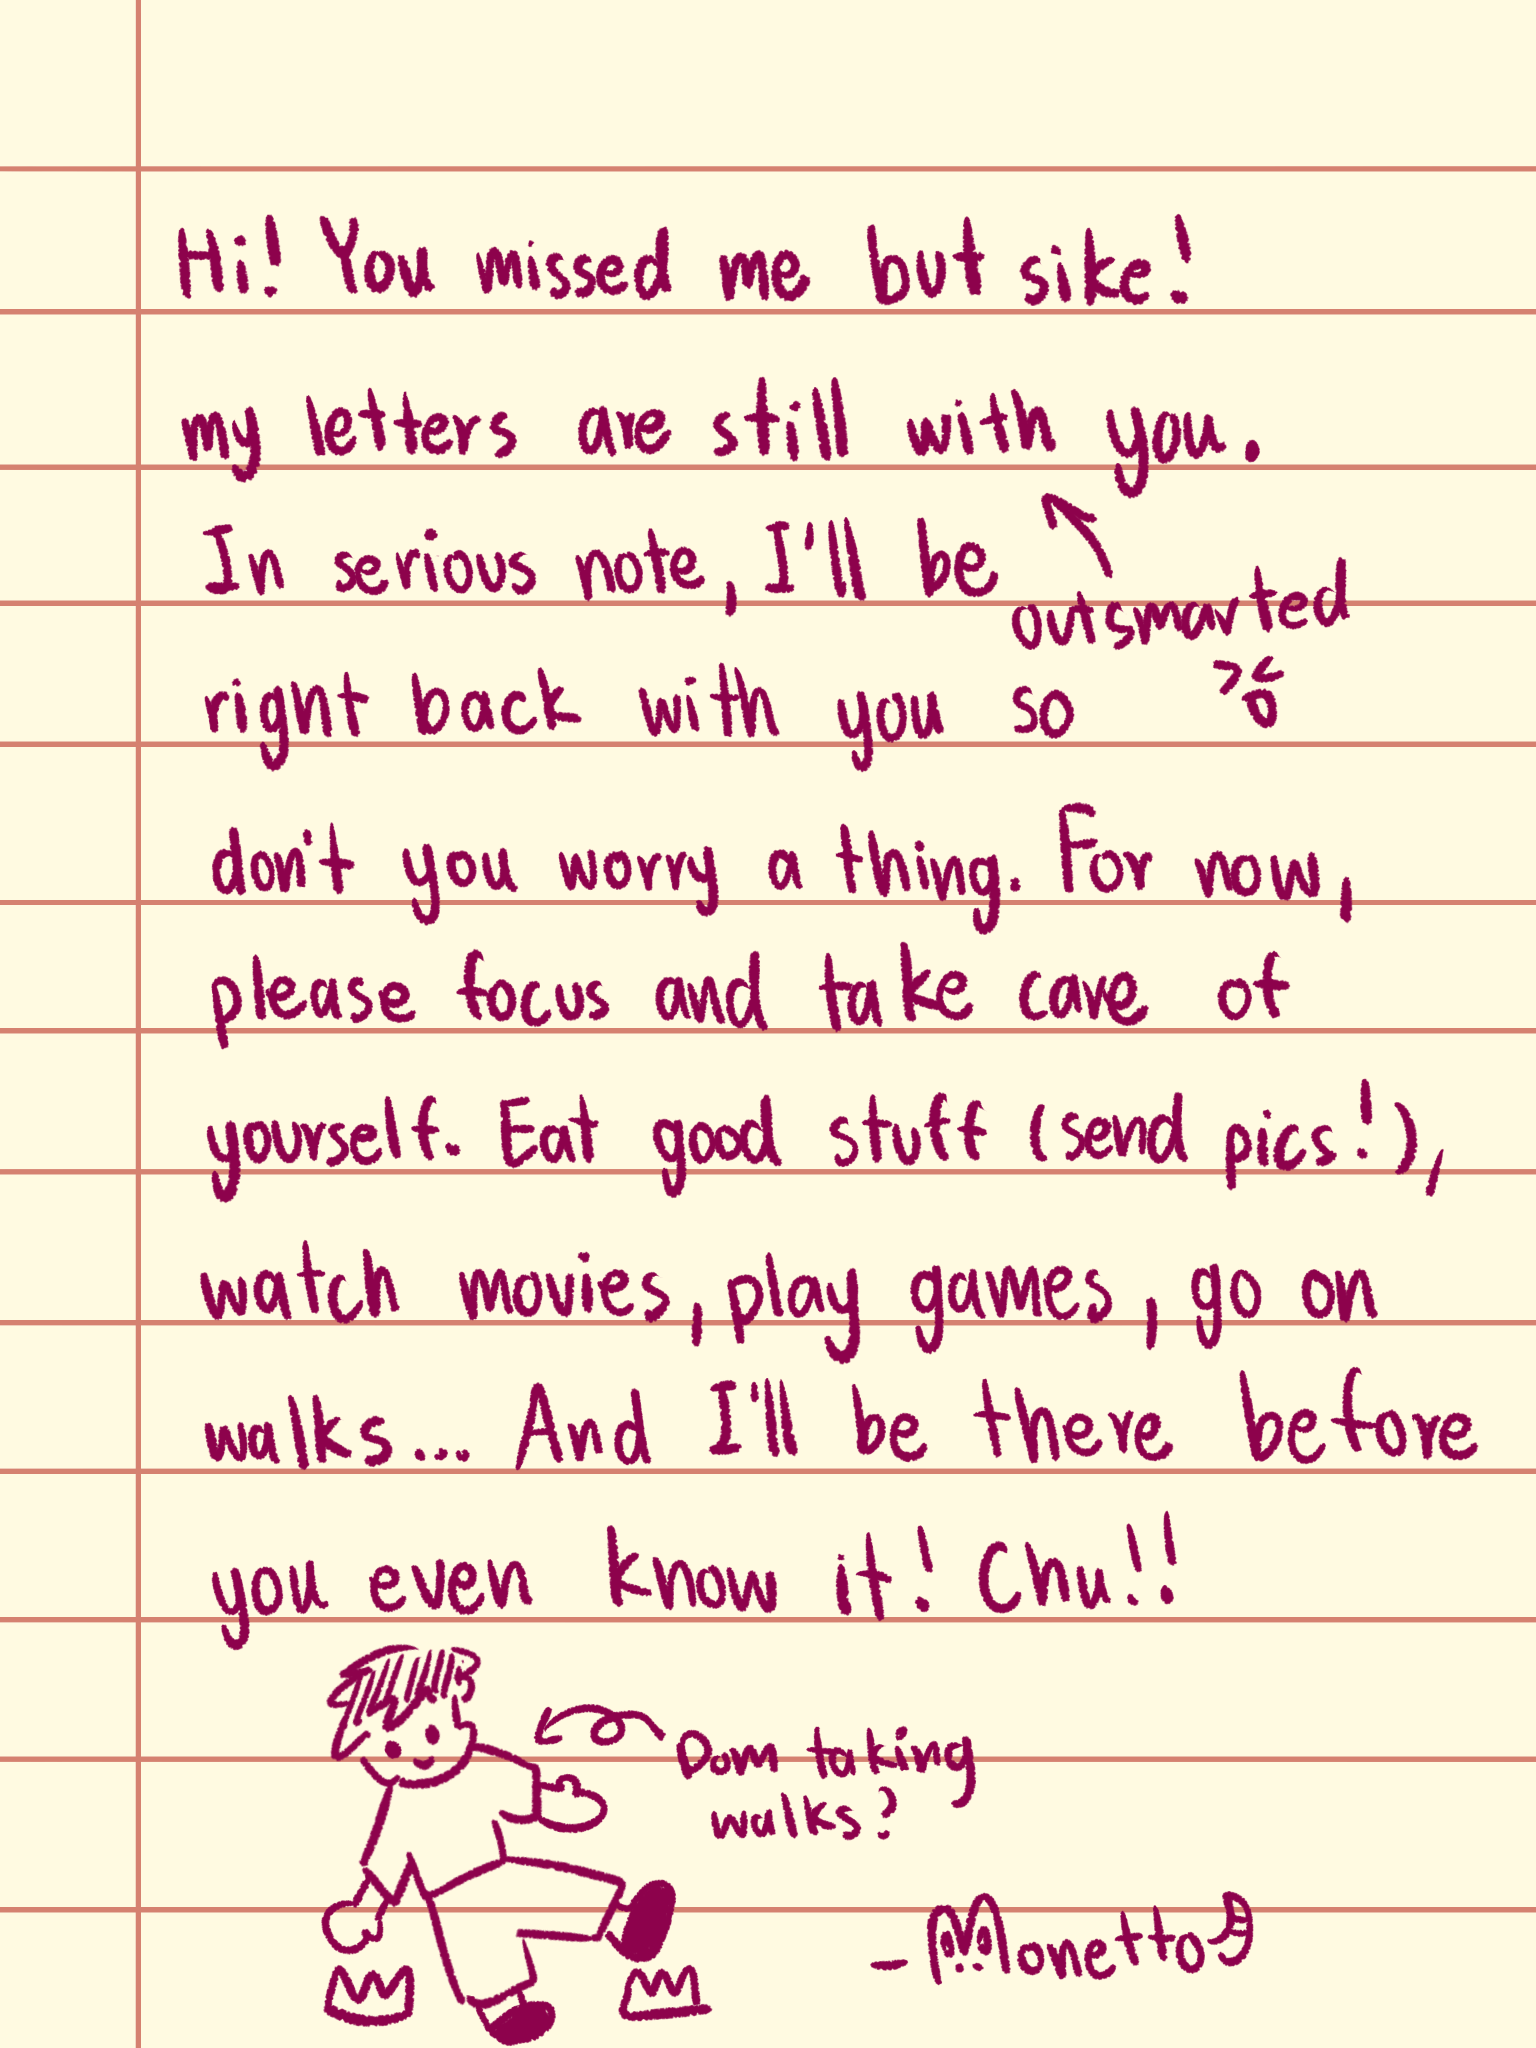 Hi! You missed me but sike!
my letters are still with you.
In serious note, I'll be
outsmarted
right back with you so
don't you worry a thing. For now,
please focus and take care of
yourself. Eat good stuff (send pics!),
watch movies, play games, go on
walks... And I'll be there before
you even know it! Chu!!
Dom taking
walks?
- Monetto